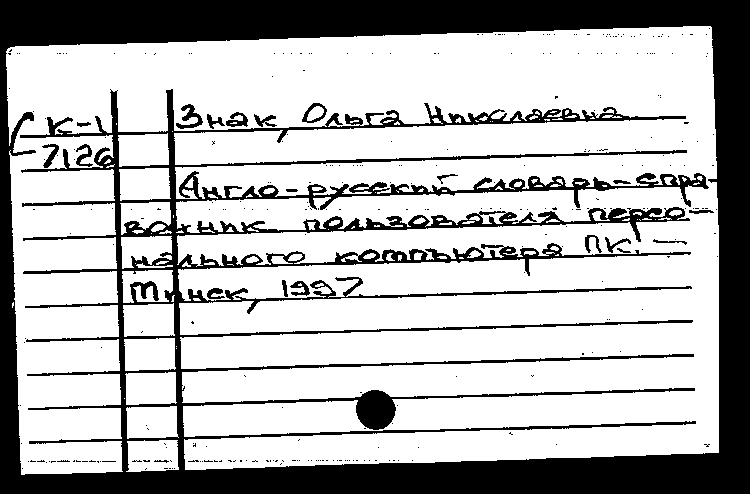 К-1
7126
Знак, Ольга Николаевна
Англо-русский словарь-спра-
вочник пользователя персо-
нального компьютера ПК. —
Минск, 1997